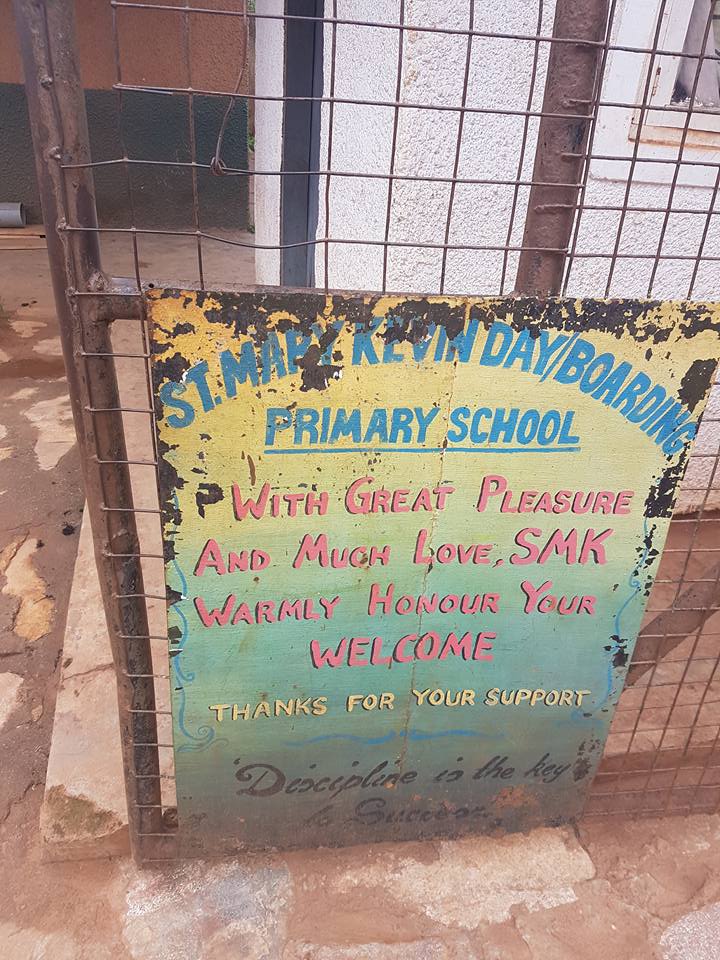 ST. MARY KEVIN DAY/BOARDING
PRIMARY SCHOOL
WITH GREAT PLEASURE
AND MUCH LOVE, SMK
WARMLY HONOUR YOUR
WELCOME
THANKS FOR YOUR SUPPORT
"Discipline is the key"
to Success.